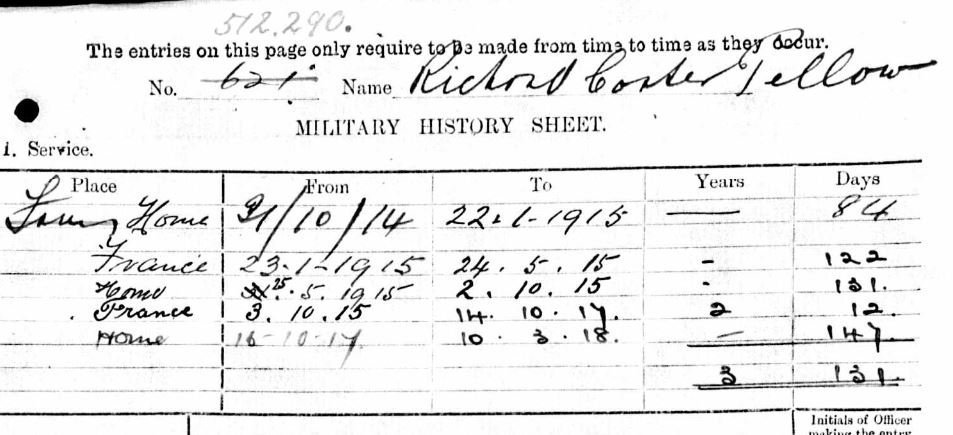 512.290.
The entries on this page only require to be made from time to time as they occur.
No. 621. Name Richard Coster Tellow
MILITARY HISTORY SHEET.
1. Service.
Place From To Years Days
Home 31/10/14 22.1-1915 — 84
France 23-1-1915 24.5.15 - 122
Home 25.5.1915 2.10.15 - 131.
France 3.10.15 14.10.17. 2 12.
Home 15-10-17. 10.3.18. — 147
3 131.
Initials of Officer
making the entry